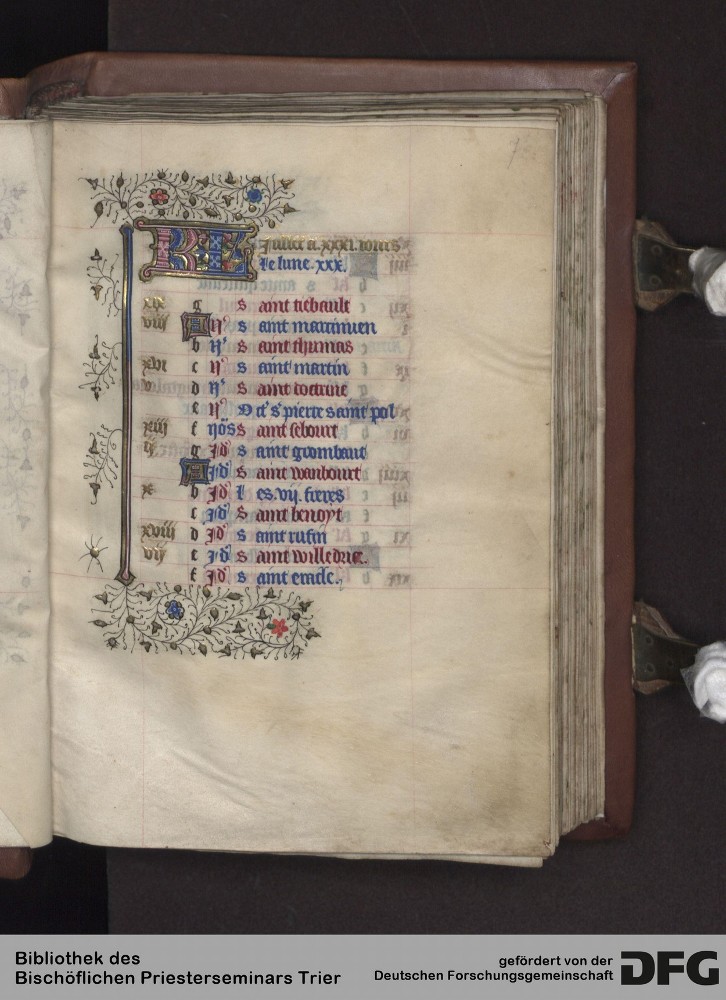 KL Juillet a. xxxi. iours
Le lune. xxx.
xix g s aint tiebault
viii A n͛ s aint martinien
b n͛ s aint thumas
xvi c n͛ s aint martin
v d n͛ s aint
e n͛ O ct͛ s͛ pierre saint pol
xiii f nōs s aint
ii g id͛ s aint gombaut
A id͛ s aint wanbourt
x b id͛ l es. vij. freres
c id͛ s aint benoyt
xviii d id͛ s aint rufin
vij e id͛ s aint
f id͛ s aint eracle.
Bibliothek des
Bischöflichen Priesterseminars Trier
gefördert von der
Deutschen Forschungsgemeinschaft
DFG